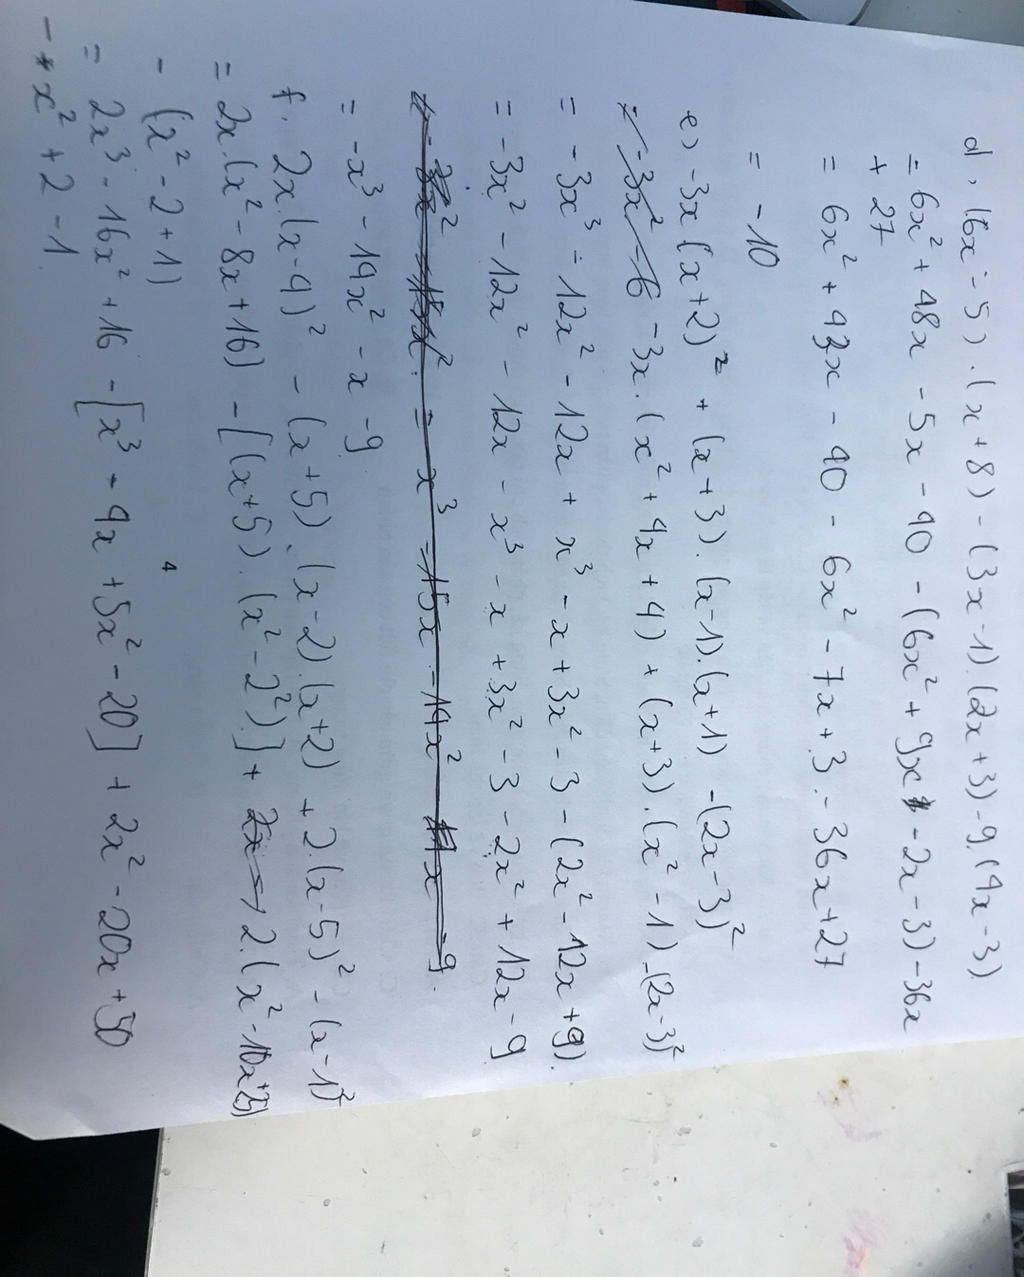 d, (6x - 5).(x + 8) - (3x - 1).(2x + 3) - 9.(4x - 3)
= 6x² + 48x - 5x - 40 - (6x² + 9x - 2x - 3) - 36x
+ 27
= 6x² + 43x - 40 - 6x² - 7x + 3 - 36x + 27
= -10
e) -3x(x+2)² + (x+3).(x-1).(x+1) - (2x-3)²
= -3x² - 6 -3x.(x² + 4x + 4) + (x+3).(x² - 1) - (2x-3)²
= -3x³ - 12x² - 12x + x³ - x + 3x² - 3 - (2x² - 12x + 9).
= -3x² - 12x² - 12x - x³ - x + 3x² - 3 - 2x² + 12x - 9
= x³ - 15x - 14x² - 9.
= -x³ - 14x² - x - 9
f, 2x.(x-4)² - (x+5).(x-2).(x+2) + 2.(x-5)² - (x-1)²
= 2x.(x² - 8x + 16) - [(x+5).(x² - 2²)] + 2.(x² - 10x + 25)
- (x² - 2 + 1)
= 2x³ - 16x² + 16 - [x³ - 4x + 5x² - 20] + 2x² - 20x + 50
- x² + 2 - 1
4